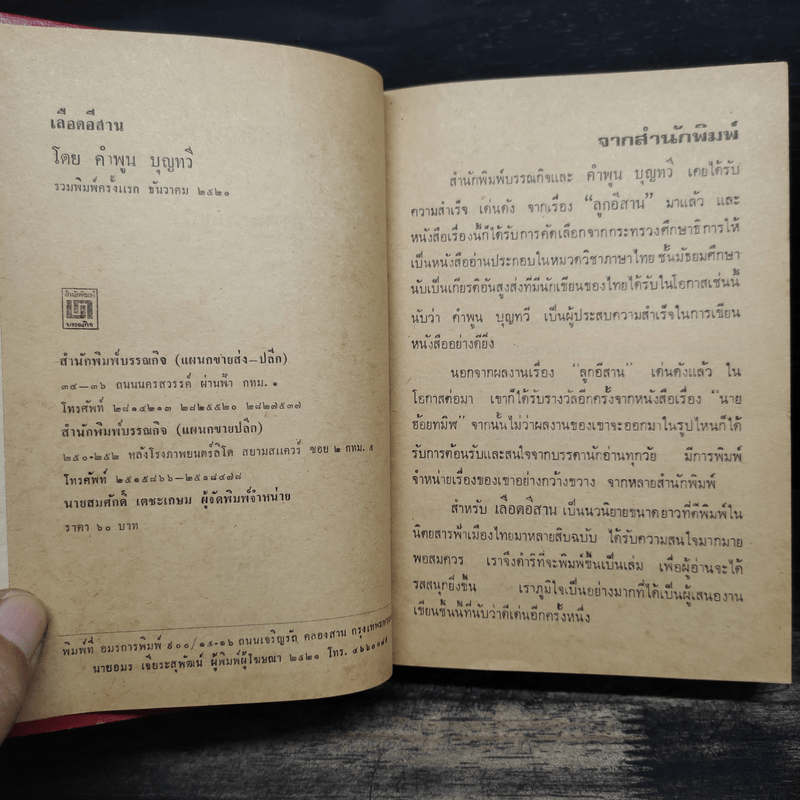 เลือดอีสาน
โดย คำพูน บุญทวี
รวมพิมพ์ครั้งแรก ธันวาคม ๒๕๒๑
สำนักพิมพ์
บรรณกิจ
สำนักพิมพ์บรรณกิจ (แผนกขายส่ง-ปลีก)
๓๔-๓๖ ถนนนครสวรรค์ ผ่านฟ้า กทม. ๑
โทรศัพท์ ๒๘๑๔๒๑๓ ๒๘๒๕๕๒๐ ๒๘๒๗๕๓๗
สำนักพิมพ์บรรณกิจ (แผนกขายปลีก)
๒๕๐-๒๕๒ หลังโรงภาพยนตร์ลิโด สยามสแควร์ ซอย ๒ กทม. ๕
โทรศัพท์ ๒๕๑๕๘๖๖-๒๕๑๘๔๗๘
นายสมศักดิ์ เตชะเกษม ผู้จัดพิมพ์จำหน่าย
ราคา ๖๐ บาท
พิมพ์ที่ อมรการพิมพ์ ๙๐๐/๑๕-๑๖ ถนนเจริญรัถ คลองสาน
นายอมร เจียระสุพัฒน์ ผู้พิมพ์ผู้โฆษณา ๒๕๒๑ โทร.
จากสำนักพิมพ์
สำนักพิมพ์บรรณกิจและ คำพูน บุญทวี เคยได้รับ
ความสำเร็จ เด่นดัง จากเรื่อง “ลูกอีสาน” มาแล้ว และ
หนังสือเรื่องนี้ก็ได้รับการคัดเลือกจากกระทรวงศึกษาธิการให้
เป็นหนังสืออ่านประกอบในหมวดวิชาภาษาไทย ชั้นมัธยมศึกษา
นับเป็นเกียรติอันสูงส่งที่มีนักเขียนของไทยได้รับในโอกาสเช่นนี้
นับว่า คำพูน บุญทวี เป็นผู้ประสบความสำเร็จในการเขียน
หนังสืออย่างดียิ่ง
นอกจากผลงานเรื่อง “ลูกอีสาน” เด่นดังแล้ว ใน
โอกาสต่อมา เขาก็ได้รับรางวัลอีกครั้งจากหนังสือเรื่อง “นาย
ฮ้อยทมิฬ” จากนั้นไม่ว่าผลงานของเขาจะออกมาในรูปไหนก็ได้
รับการต้อนรับและสนใจจากบรรดานักอ่านทุกวัย มีการพิมพ์
จำหน่ายเรื่องของเขาอย่างกว้างขวาง จากหลายสำนักพิมพ์
สำหรับ เลือดอีสาน เป็นนวนิยายขนาดยาวที่ตีพิมพ์ใน
นิตยสารฟ้าเมืองไทยมาหลายสิบฉบับ ได้รับความสนใจมากมาย
พอสมควร เราจึงดำริที่จะพิมพ์ขึ้นเป็นเล่ม เพื่อผู้อ่านจะได้
รสสนุกยิ่งขึ้น เราภูมิใจเป็นอย่างมากที่ได้เป็นผู้เสนองาน
เขียนชิ้นนี้ที่นับว่าดีเด่นอีกครั้งหนึ่ง